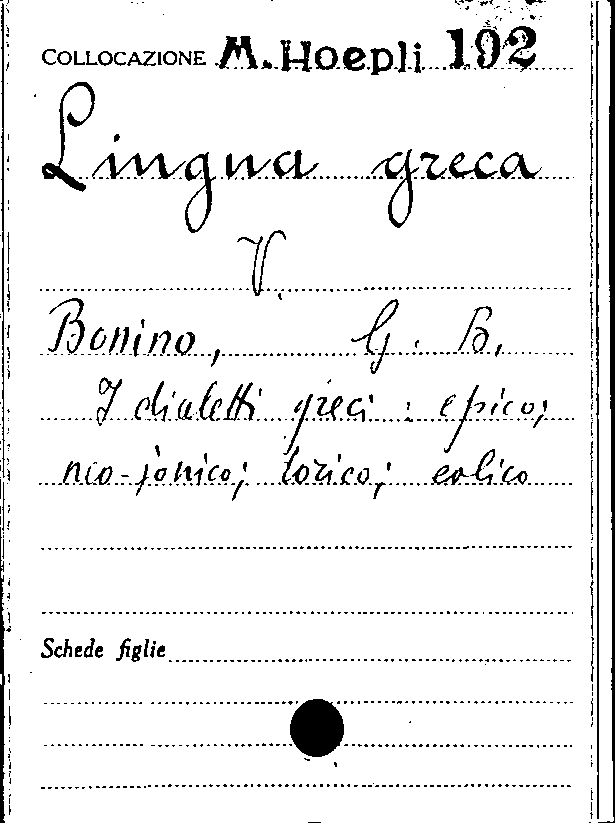 COLLOCAZIONE M. Hoepli 192
Lingua greca
V.
Bonino, G. B.
I dialetti greci: epico;
neo-jonico; dorico; eolico
Schede figlie